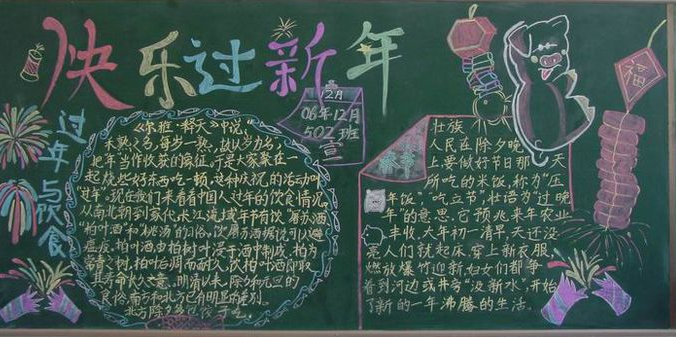 快乐过新年
2月
06年12月
502班
宣
福
过年与饮食
《尔雅·释天》中说，
禾熟之名，每岁一熟，故以岁为名，
把年当作收获的象征，于是大家聚在一
起烧些好东西吃一顿，这种庆祝的活动叫
过年。现在我们来看看中国人过年的饮食情况。
从南北朝到宋代长江流域年节有饮"屠苏酒
柏叶酒和"桃汤"的习俗，饮屠苏酒据说可以避
瘟疫，柏叶酒由柏树叶浸于酒中制成，柏为
常青之树，柏怡凋而耐久，饮柏叶酒自取
其寿命长久之意。明清以来，除夕和元旦的
食俗南方和北方已有明显的差别。
北方除夕
壮族
人民在除夕晚
上要做好节日那一天
所吃的米饭，称为"压
年饭"，"吃立节"，壮语为"过晚
年"的意思，它预兆来年农业
丰收。大年初一清早，天还没
亮人们就起床，穿上新衣服
燃放爆竹迎新，妇女们都争
着到河边或井旁"汲新水"，开始
了新的一年沸腾的生活。